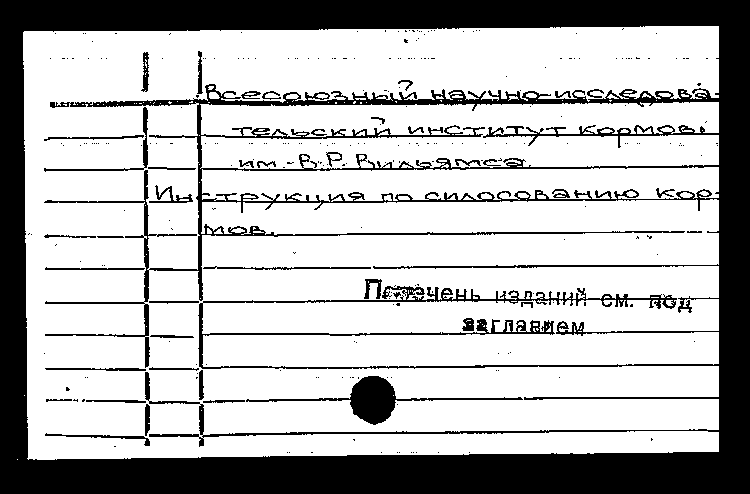 Всесоюзный научно-исследова-
тельский институт кормов.
им. В.Р. Вильямса.
Инструкция по силосованию кор-
мов.
Перечень изданий см. под
заглавием